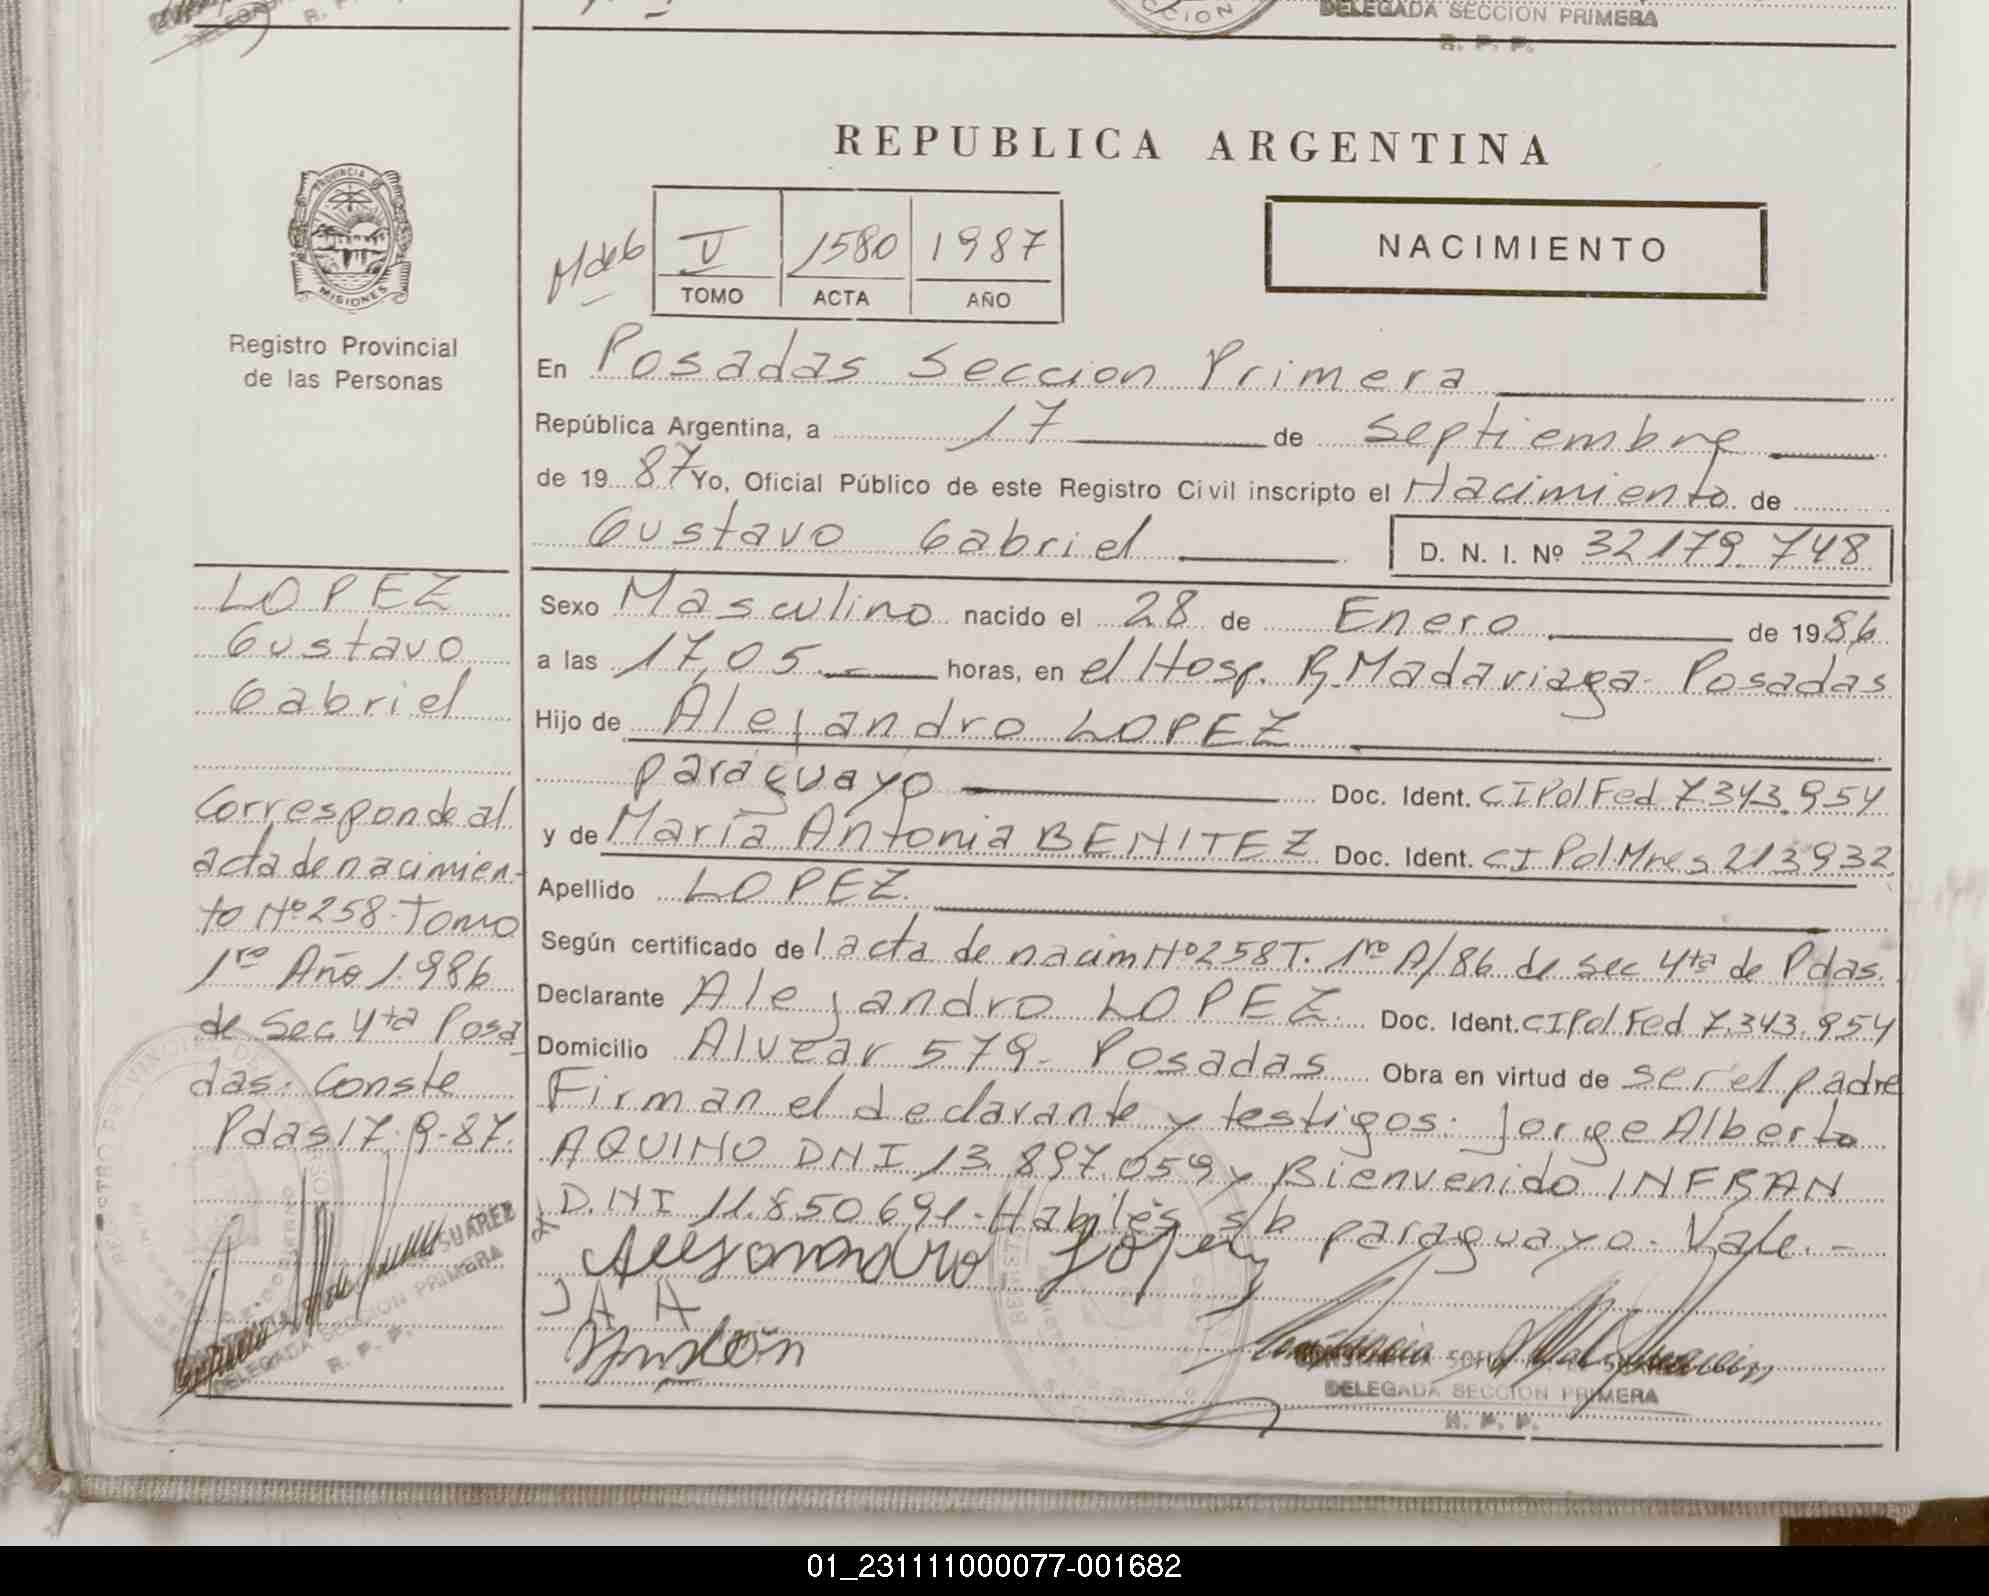 DELEGADA SECCION PRIMERA
R. P. P.
REPUBLICA ARGENTINA
PROVINCIA DE
MISIONES
Registro Provincial
de las Personas
V 1580 1987
TOMO ACTA AÑO
NACIMIENTO
En Posadas Seccion Primera
República Argentina, a 17 de septiembre
de 1987 Yo, Oficial Público de este Registro Civil inscripto el Nacimiento de
Gustavo Gabriel D. N. I. Nº 32179.748
LOPEZ
Gustavo
Gabriel
Corresponde al
acta de nacimien-
to Nº 258. Tomo
1ro Año 1.986
de Sec 4ta Posa
das. Conste
Pdas 17.9.87.
SUAREZ
DELEGADA SECCION PRIMERA
R. P. P.
Sexo Masculino nacido el 28 de Enero de 1986
a las 17,05 horas, en el Hosp. R. Madariaga. Posadas
Hijo de Alejandro LOPEZ
paraguayo Doc. Ident. CI Pol Fed 7.343.954
y de María Antonia BENITEZ Doc. Ident. CI Pol Mnes 213932
Apellido LOPEZ.
Según certificado del acta de nacim Nº 258 T. 1ro A/86 de sec 4ta de Pdas.
Declarante Alejandro LOPEZ. Doc. Ident. CI Pol Fed 7.343.954
Domicilio Alvear 579- Posadas Obra en virtud de ser el padre
Firman el declarante y testigos: Jorge Alberto
AQUINO DNI 13.897.059 y Bienvenido INFRAN
D.NI 11.850.691- Habiles s/b paraguayo. Vale.-
López
J A A
DELEGADA SECCION PRIMERA
R. P. P.
01_231111000077-001682